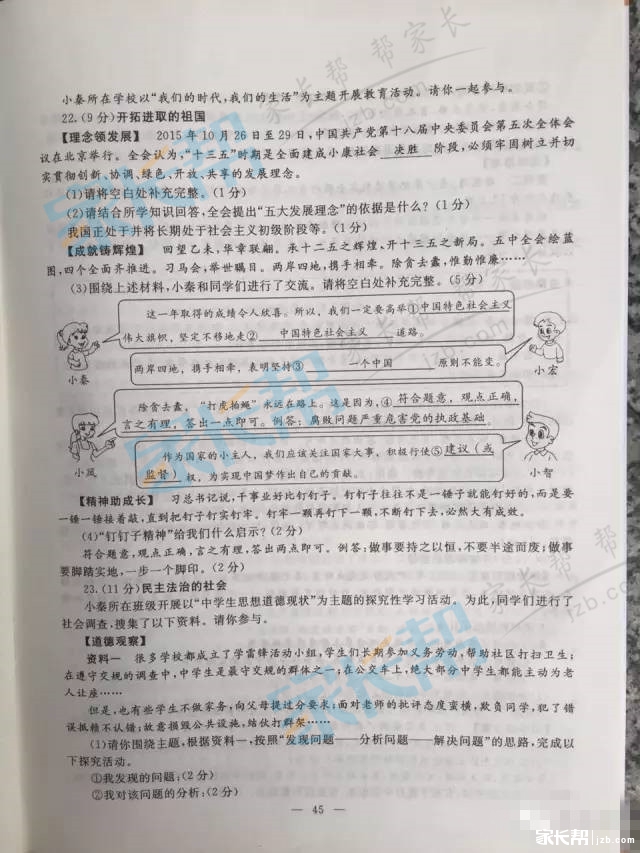 小秦所在学校以“我们的时代,我们的生活”为主题开展教育活动。请你一起参与。
22.(9分)开拓进取的祖国
【理念领发展】 2015年10月26日至29日,中国共产党第十八届中央委员会第五次全体会
议在北京举行。全会认为,“十三五”时期是全面建成小康社会 决胜 阶段,必须牢固树立并切
实贯彻创新、协调、绿色、开放、共享的发展理念。
(1)请将空白处补充完整。(1分)
(2)请结合所学知识回答,全会提出“五大发展理念”的依据是什么?(1分)
我国正处于并将长期处于社会主义初级阶段等。(1分)
【成就铸辉煌】 回望乙未,华章联翩。承十二五之辉煌,开十三五之新局。五中全会绘蓝
图,四个全面齐推进。习马会,举世瞩目。两岸四地,携手相牵。除贪去蠹,惟勤惟廉……
(3)围绕上述材料,小秦和同学们进行了交流。请将空白处补充完整。(5分)
这一年取得的成绩令人欣喜。所以,我们一定要高举①中国特色社会主义
伟大旗帜,坚定不移地走② 中国特色社会主义 道路。
小秦
两岸四地,携手相牵,表明坚持③ 一个中国 原则不能变。
小宏
除贪去蠹,“打虎拍蝇”永远在路上。这是因为,④符合题意,观点正确,
言之有理,答出一点即可。例答:腐败问题严重危害党的执政基础
小凤
作为国家的小主人,我们应该关注国家大事,积极行使⑤建议(或
监督)权,为实现中国梦作出自己的贡献。
小智
【精神助成长】 习总书记说,干事业好比钉钉子。钉钉子往往不是一锤子就能钉好的,而是要
一锤一锤接着敲,直到把钉子钉实钉牢。钉牢一颗再钉下一颗,不断钉下去,必然大有成效。
(4)“钉钉子精神”给我们什么启示?(2分)
符合题意,观点正确,言之有理,答出两点即可。例答:做事要持之以恒,不要半途而废;做事
要脚踏实地,一步一个脚印。(2分)
23.(11分)民主法治的社会
小秦所在班级开展以“中学生思想道德现状”为主题的探究性学习活动。为此,同学们进行了
社会调查,搜集了以下资料。请你参与。
【道德观察】
资料一 很多学校都成立了学雷锋活动小组,学生们长期参加义务劳动,帮助社区打扫卫生;
在遵守交规的调查中,中学生是最守交规的群体之一;在公交车上,绝大部分中学生都能主动为老
人让座……
但是,也有些学生不做家务,向父母提过分要求;面对老师的批评态度蛮横,欺负同学,犯了错
误抵赖不认错;故意损毁公共设施,结伙打群架……
(1)请你围绕主题,根据资料一,按照“发现问题——分析问题——解决问题”的思路,完成以
下探究活动。
①我发现的问题:(2分)
②我对该问题的分析:(2分)
— 45 —
家长帮 帮家长
jzb.com
家长帮
家长帮 jzb.com